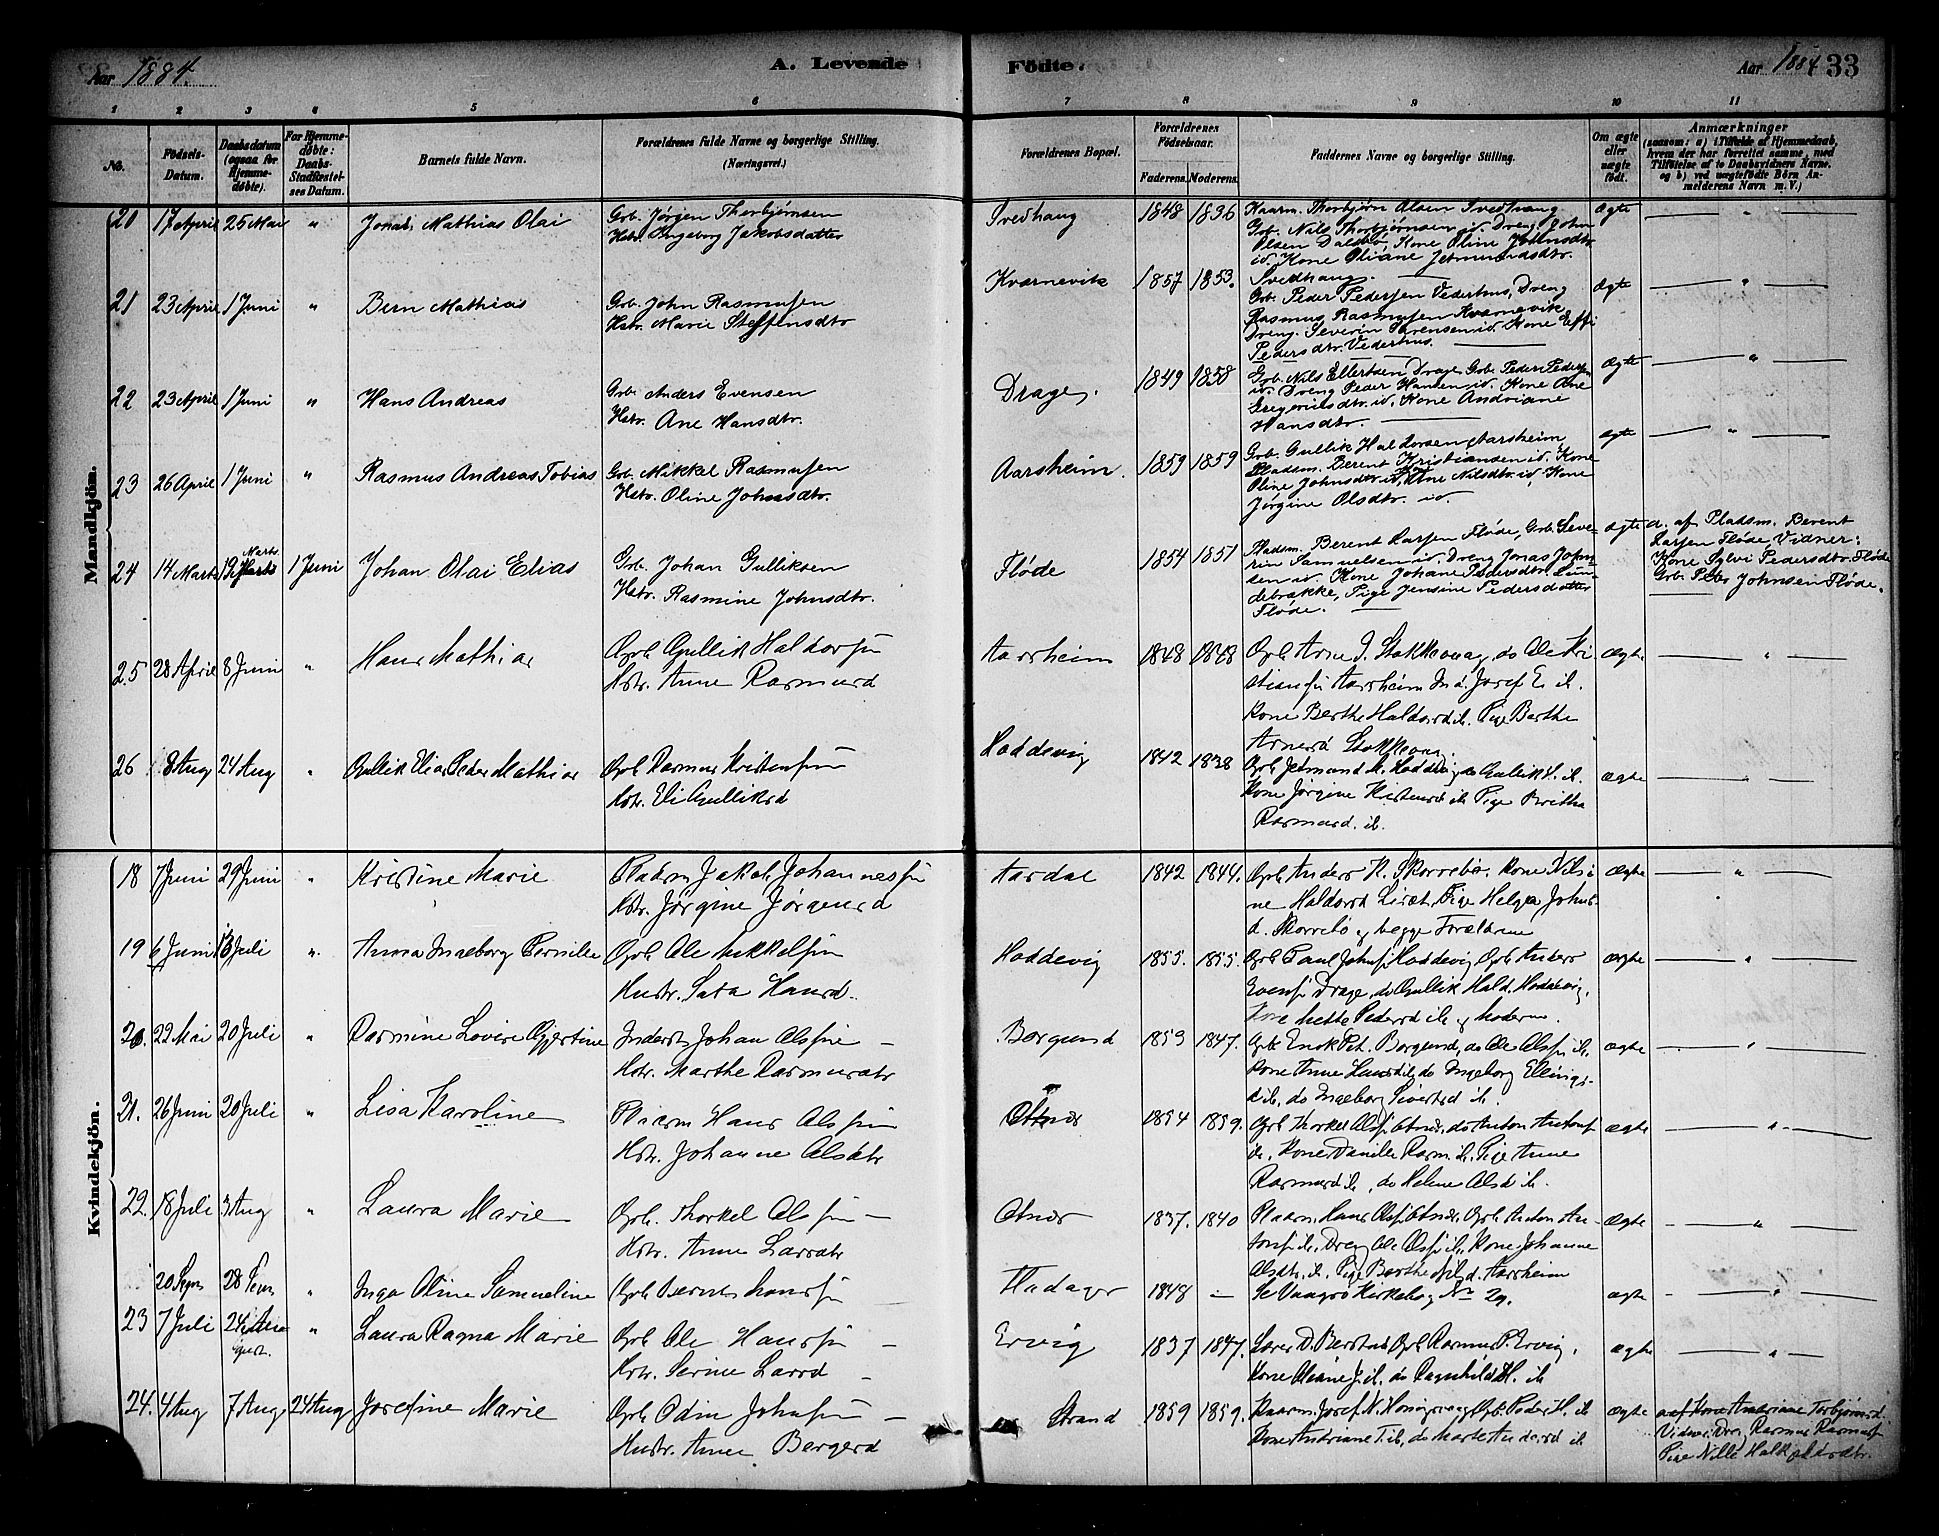 Aar 1884.
A. Levende
Fødte.
Aar 1884
33
1 2 3 4 5 6 7 8 9 10 11
No.
Fødsels-Datum.
Daabsdatum (ogsaa for Hjemme-døbte).
For Hjemme-døbte: Daabs-Stadfæstel-ses Datum.
Barnets fulde Navn.
Forældrenes fulde Navne og borgerlige Stilling. (Næringsvei.)
Forældrenes Bopæl.
Forældrenes Fødselsaar.
Faderens. Moderens.
Faddernes Navne og borgerlige Stilling.
Om ægte eller uægte født.
Anmærkninger
(saasom: a) i Tilfælde af Hjemmedaab, hvem der har forrettet samme, med Tilføielse af to Daabsvidners Navne. og b) ved uægtefødte Børn An-melderens Navn m. V.)
Mandkjön.
20 17 April 25 Mai " Jonas Mathias Olai
Grb. Jørgen Thorbjørnsen
Hstr. Ingeborg Jakobsdatter
Svedhaug 1848 1836
Kaarm. Thorbjørn Olsen Svedhaug
Grb. Nils Thorbjørnsen id. Dreng John
Olsen Dalsbø, Kone Oline Johnsdtr.
id. Kone Oliane Jetmundsdtr.
Svedhaug.
ægte "
21 23 April 1 Juni " Bern Mathias
Grb. John Rasmusen
Hstr. Marie Steffensdtr
Kvarnevik 1857 1853.
Grb. Peder Pedersen Vederhus, Dreng
Rasmus Rasmusen Kvarnevik
Dreng. Severin Sørensen id. Kone Effi
Pedersdtr. Vederhus.
ægte "
22 23 April 1 Juni " Hans Andreas
Grb. Anders Evensen
Hstr. Ane Hansdtr.
Drage. 1849 1858
Grb. Nils Ellertsen Drage Grb. Peder Peders
id. Dreng Peder Hansen id. Kone Ane
Gregoriusdtr. id. Kone Andriane
Hansdtr.
ægte "
23 26 April 1 Juni " Rasmus Andreas Tobias
Grb. Mikkel Rasmusen
Hstr. Oline Johnsdtr.
Aarsheim. 1859 1859
Grb. Gullik Haldorsen Aarsheim
Pladsm. Berent Kristiansen id. Kone
Oline Johnsdtr. id. Ane Nilsdtr. id. Kone
Jørgine Olsdtr. id.
ægte "
24 14 Marts 19 Marts 1 Juni Johan Olai Elias
Grb. Johan Gulliksen
Hstr. Rasmine Johnsdtr.
Fløde 1854 1851
Pladsm. Berent Larsen Fløde, Grb. Seve-
rin Samuelsen id. Dreng Jonas John-
sen id. Kone Johane Pedersdtr. Lun-
debrække, Pige Jensine Pedersdatter
Fløde.
ægte
a. af Pladsm. Berent
Larsen Fløde Vidner:
Kone Sylvi Pedersdtr. Fløde
Grb. Peter Johnsen Fløde.
25 28 April 8 Juni " Hans Mathias
Grb Gullik Haldorsen
Hstr. Anne Rasmusd
Aarsheim 1848 1848
Grb Arne J. Stokkevaag, do Ole Kri
stiansen Aarsheim Ind. Josef E. ib.
Kone Berthe Haldorsd ib. Pige Berthe
Arnesd Stokkevaag.
ægte "
26 8 Aug 24 Aug " Gullik Elias Peder Mathias
Grb Rasmus Kristensen
Hstr. Eli Gulliksd
Hoddevig 1842 1838
Grb Jetmund M. Hoddevig do Gullik H. ib.
Kone Jørgine Kristensd ib. Pige Britha
Rasmusd. ib.
ægte "
Kvindekjön.
18 7 Juni 29 Juni " Kristine Marie
Pladsm Jakob Johannessen
Hstr. Jørgine Jørgensd
Aardal 1842 1844.
Grb Anders K. Skorrebø. Kone Nilsi
ne Haldorsd Liset, Pige Helga Johns
d. Skorrebø og begge Forældrene
ægte "
19 6 Juni 13 Juli " Anna Ingeborg Pernille
Grb Ole Mikkelsen
Hustr. Sata Hansd.
Hoddevig 1855. 1855.
Grb Paul Johns. Hoddevig Grb Anders
Evensen Drage, do Gullik Hald. Hoddevig,
Kone Mette Pedersd ib og Moderen.
ægte "
20. 22 Mai 20 Juli " Rasmine Lovise Gjertine
Inderst Johan Olsen
Hstr. Marthe Rasmusdtr
Borgund 1859 1847.
Grb Enok Pet. Borgund, do Ole Olsen ib.
Kone Anne Hansd ib, do Ingeborg Ellings-
d ib, do Ingeborg Sivertsd ib.
ægte "
21. 26 Juni 20 Juli " Lisa Karoline
Hans Olssen
Hstr. Johanne Olsdtr
Otnes 1854 1859.
Grb Thorkel Olsen Otnes, do Anton Antons
ib, Kone Danille Rasm. ib. Pige Anne
Rasmusd ib, do Helene Olsd ib.
ægte "
22. 18 Juli 3 Aug " Laura Marie
Grb. Thorkel Olsen
Hstr. Anne Larsdtr
Otnes 1837. 1840
Hans Olsen Otnes, Grb Anton An-
tonsen ib, Dreng Ole Olsen ib, Kone Johanne
Olsdtr. ib. Pige Berthe Nilsd. Aarsheim
ægte "
20 Sepr 28 Sepr " Inga Oline Samueline
Grb Bernt
1848 —
Se Vaagsø Kirkebog No 29.
ægte "
23 7 Juli 24 August. " Laura Ragna Marie
Grb Ole Hanssen
Hstr. Serine Larsd
Ervig 1837 1847.
Lærer D. Berstad Grb Rasmus P. Ervig,
Kone Oliane J. ib. do Ragnhild H. ib
ægte "
24. 4 Aug 7 Aug 24 Aug Josefine Marie
Grb Odin Johnsen
Hustr. Anne Bergersd
Strand 1859 1859.
Kaarm. Josef N. Honingsvaag Grb. Peder H. ib
Kone Andriane T. ib, do Marte Andersd ib
ægte
a. af Kone Andriane Torbjørnsd.
Vidner: Dreng Rasmus Rasmusen
Pige Nille Halkjeldsdtr.